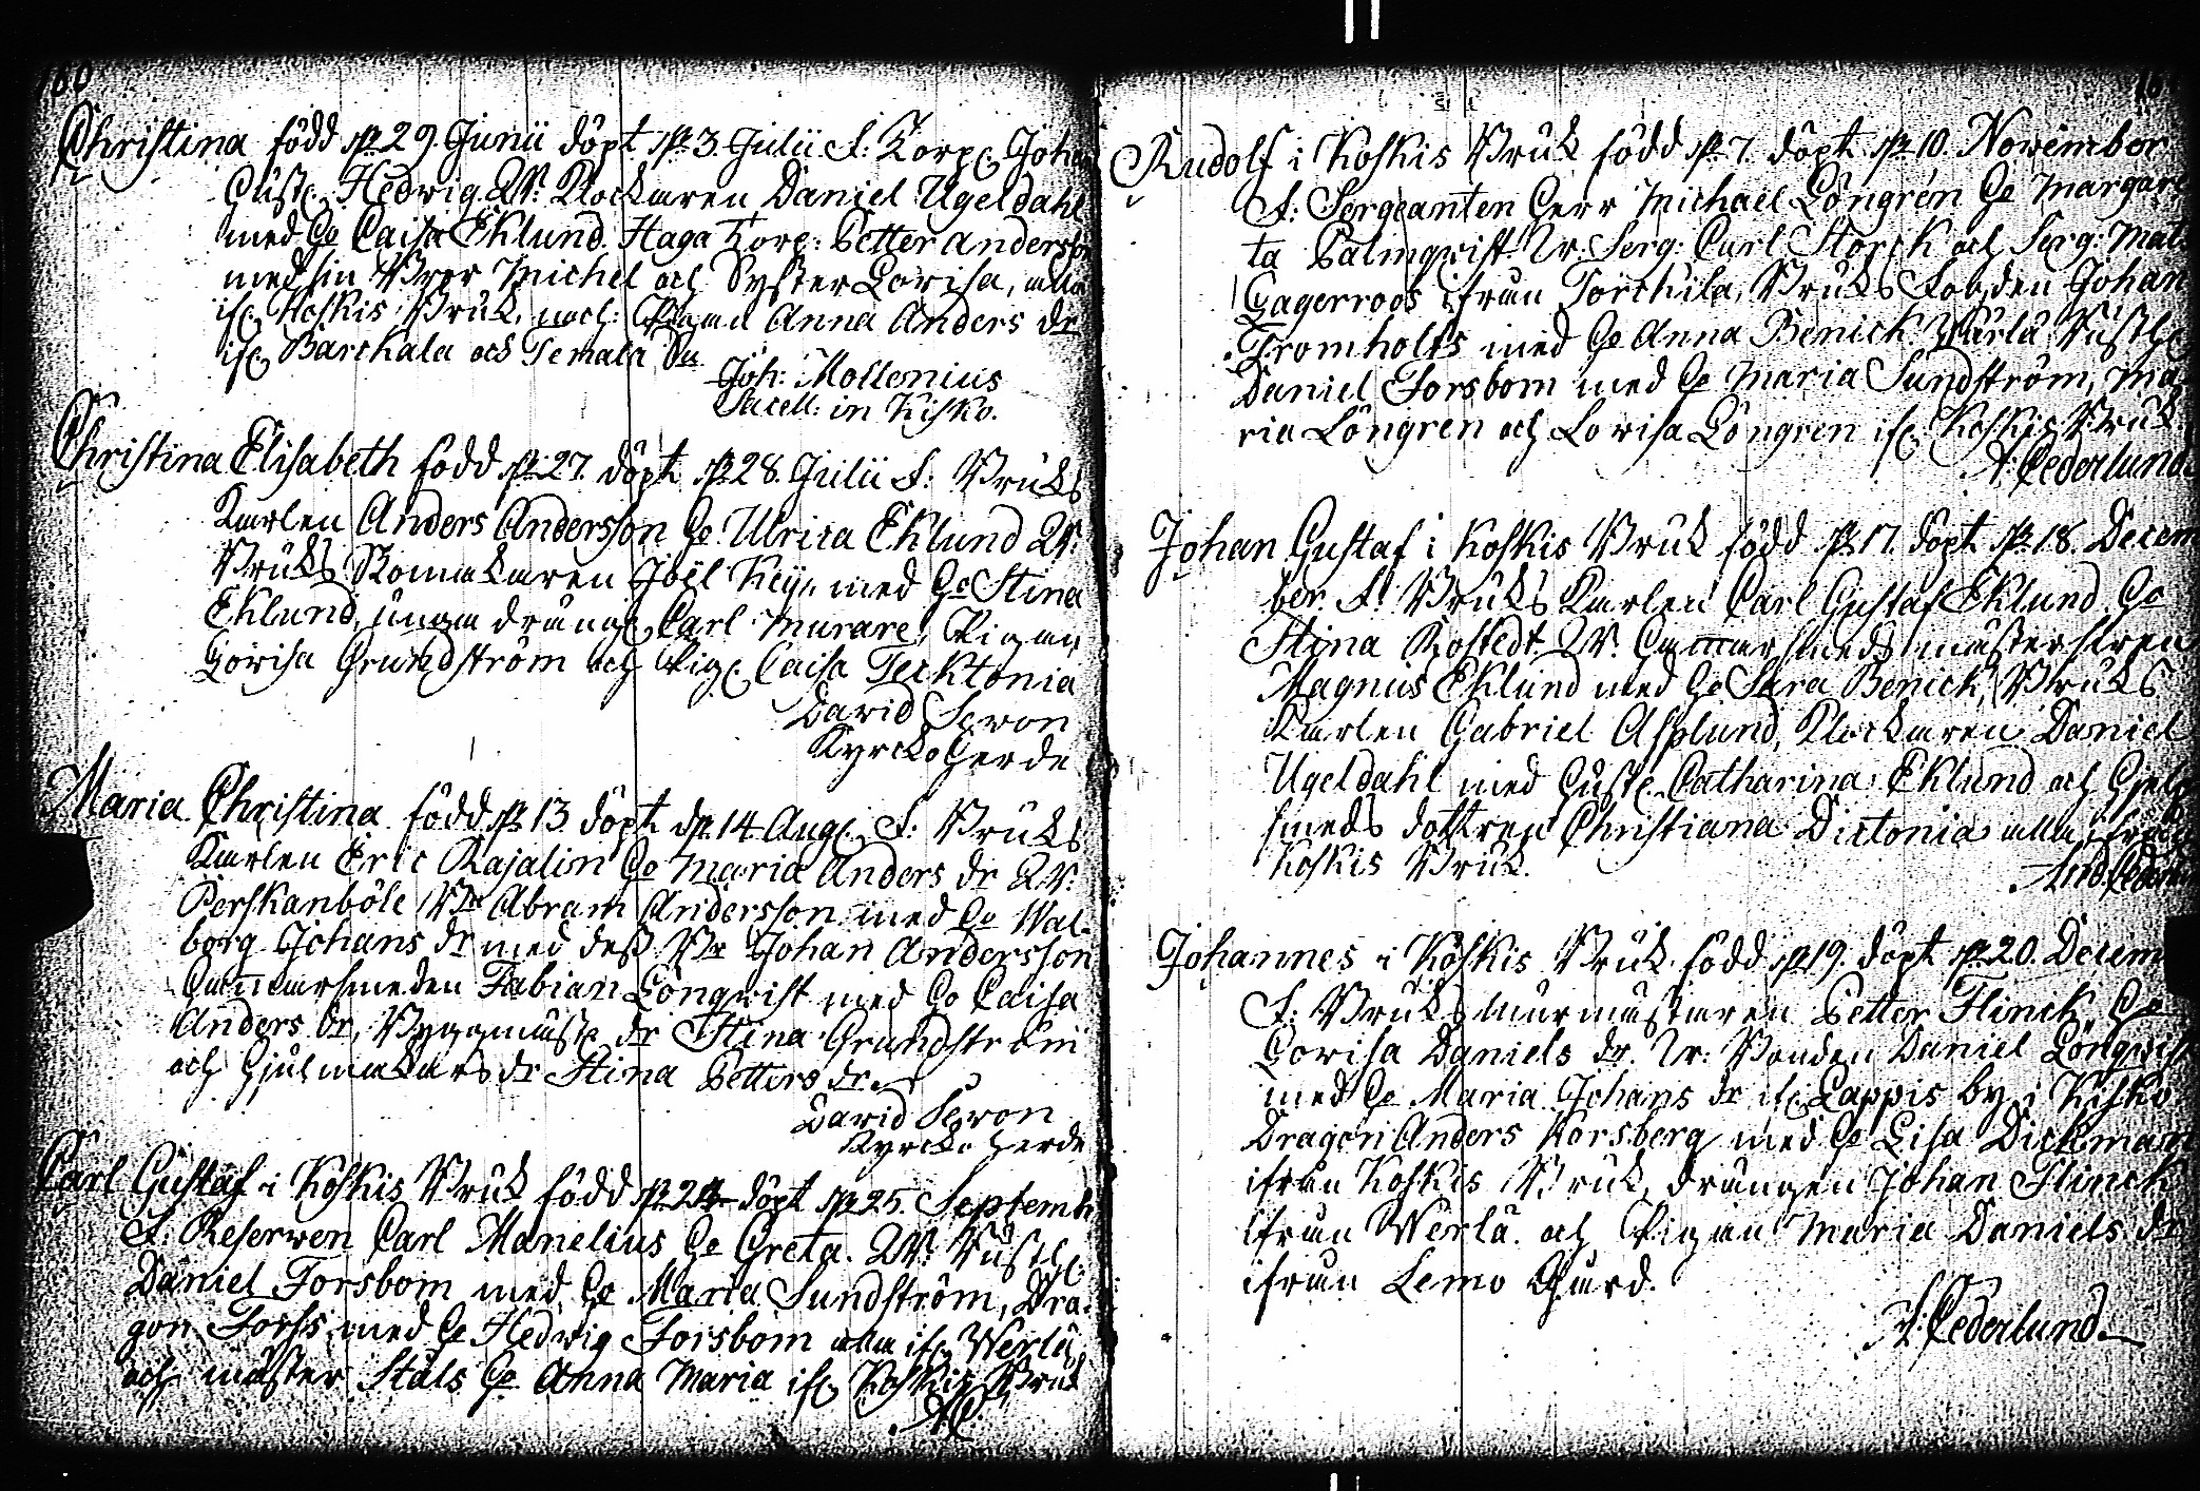 160
Christina född d. 29. Junii döpt d. 3. Julii F: Torp. Johan
Hust. Hedvig W: Klockaren Daniel Ugeldahl
med H. Caisa Eklund. Haga Torp: Petter Andersson
med sin Bror Michel och Syster Lovisa, alla
ifr. Koskis Bruk, och Pigan Anna Anders dr
ifr. Barckala och Temala Sn
Joh: Mollenius
Sacell: in Kisko.
Christina Elisabeth född d. 27. döpt d. 28. Julii F: Bruks
Karlen Anders Andersson H. Ulrica Eklund W:
Bruks Romakaren Joël Key, med H. Stina
Eklund, unga dräng. Carl Murare, Pigan
Lovisa Grundström och Pig. Caisa Tecktonia
David Seron
Kyrckoherde
Maria Christina född d. 13 döpt d. 14 Aug. F: Bruks
Karlen Eric Rajalin H. Maria Anders dr W:
Perskanböle Br Abram Andersson med H. Wal-
borg Johans dr med dess Br Johan Andersson
Hammarsmeden Fabian Lönqvist med H. Caisa
Anders dr, Byggmäst. dr Stina Grundström
och Hjulmakars dr Stina Petters dr
David Seron
Kyrckoherde
Carl Gustaf i Koskis Bruk född d. 24 döpt d. 25. Septemb
F: Reserven Carl Manelius H. Greta. W: Rusth.
Daniel Forsbom med H. Maria Sundström, Dra-
gon Forss med H. Hedvig Forsbom alla ifr. Werlå
och mäster Ståls H. Anna Maria ifr. Koskis Bruk
AC
Rudolf i Koskis Bruk född d. 7. döpt d. 10. November
F: Sergeanten Herr Michael Löngrén H. Margare
ta Palmqvist W: Serg: Carl Storck och Serg: Mat
Lagerroos ifrån Torckila, Bruks Fogden Johan
Fromholts med H. Anna Benick. Wärlå Rusth.
Daniel Forsbom med H. Maria Sundström, Ma
ria Löngren och Lovisa Löngren ifr. Koskis Bruk
A: Cederlund
Johan Gustaf i Koskis Bruk född d. 17. döpt d. 18. Decem
ber. F: Bruks Karlen Carl Gustaf Eklund H.
Stina Rostedt W: Hammarsmeds mästersven
Magnus Eklund med H. Sara Benick, Bruks
Karlen Gabriel Asplund, Klockaren Daniel
Ugeldahl med Hust. Catharina Eklund och Hjelp
smeds dottren Christiana Dictonia alla ifrån
Koskis Bruk.
And. Cederlun
Johannes i Koskis Bruk född d. 19. döpt d. 20. Decem
F: Bruks murmästaren Petter Flinck H.
Lovisa Daniels dr. W: Bonden Daniel Lönqvist
med H. Maria Johans dr ifr. Lappis by i Kisko
Dragon Anders Korsberg med H. Lisa Dickman
ifrån Koskis Bruk, drängen Johan Flinck
ifrån Werlå. och Pigan Maria Daniels dr
ifrån Lemo Gård.
A: Cederlund